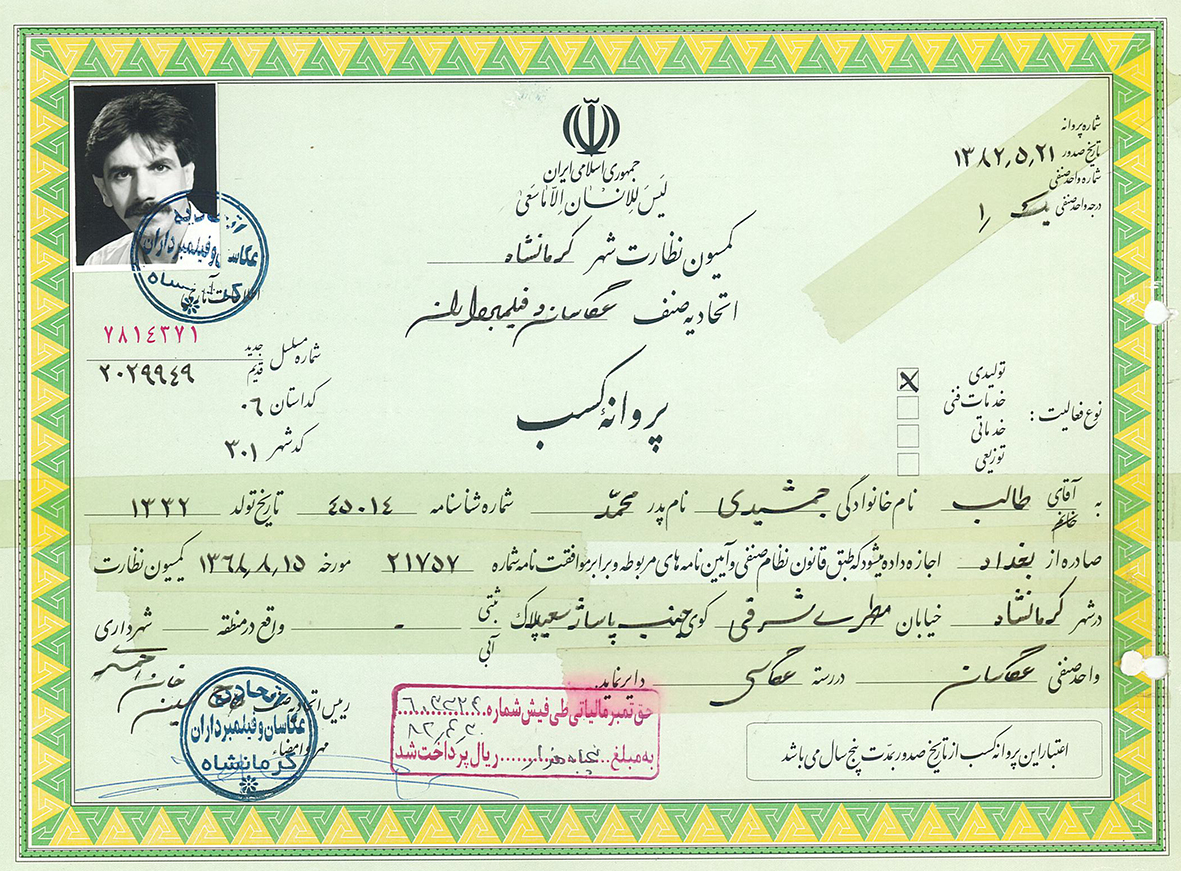 جمهوری اسلامی ایران
لَیسَ لِلاِنسان اِلّا ماسَعیٰ
کمیسیون نظارت شهر کرمانشاه
اتحادیه صنف عکاسان و فیلمبرداران
پروانهٔ کسب
شماره پروانه
تاریخ صدور ۱۳۸۲,۵,۲۱
شماره واحد صنفی
درجه واحد صنفی یک ۱
اتحادیه
عکاسان و فیلمبرداران
کرمانشاه
شماره مسلسل جدید ۷۸۱۴۳۷۱
قدیم ۲۰۲۹۹۴۹
کد استان ۰۶
کد شهر ۳۰۱
نوع فعالیت :
تولیدی
خدمات فنی
خدماتی
توزیعی
به آقای خانم طالب نام خانوادگی جمشیدی نام پدر محمد شماره شناسنامه ۴۵۰۱۴ تاریخ تولد ۱۳۳۲
صادره از بغداد اجازه داده میشود که طبق قانون نظام صنفی و آیین نامه های مربوطه و برابر موافقت نامه شماره ۲۱۷۵۷ مورخه ۱۳۶۸,۸,۱۵ کمیسیون نظارت
در شهر کرمانشاه خیابان مطهری شرقی کوی جنب پاساژ سعید پلاک ثبتی آبی - واقع در منطقه شهرداری
واحد صنفی عکاسان در رسته عکاسی دایر نماید.
رئیس اتحادیه صنف
مهر و امضاء
اتحادیه
عکاسان و فیلمبرداران
کرمانشاه
حق تمبر مالیاتی طی فیش شماره
به مبلغ پنجاه هزار ریال پرداخت شد
اعتبار این پروانه کسب از تاریخ صدور بمدّت پنج سال می باشد